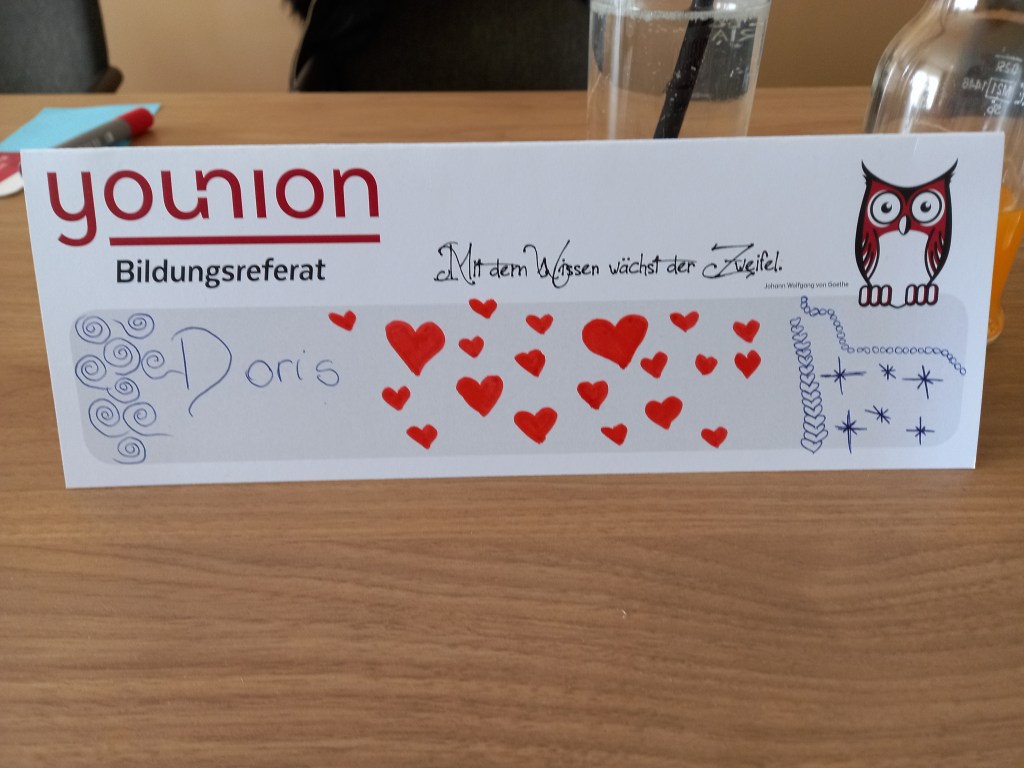 younion
Bildungsreferat
Mit dem Wissen wächst der Zweifel.
Johann Wolfgang von Goethe
Doris